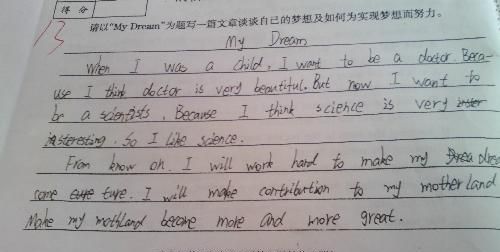 得分
13
请以"My Dream"为题写一篇文章谈谈自己的梦想及如何为实现梦想而努力。
My Dream
When I was a child, I want to be a doctor. Beca-
use I think doctor is very beautiful. But now I want to
be a scientists. Because I think science is very inster
insteresting. So I like science.
From know on. I will work hard to make my Drea drea
come ture ture. I will make contribution to my motherland
Make my mothland become more and more great.